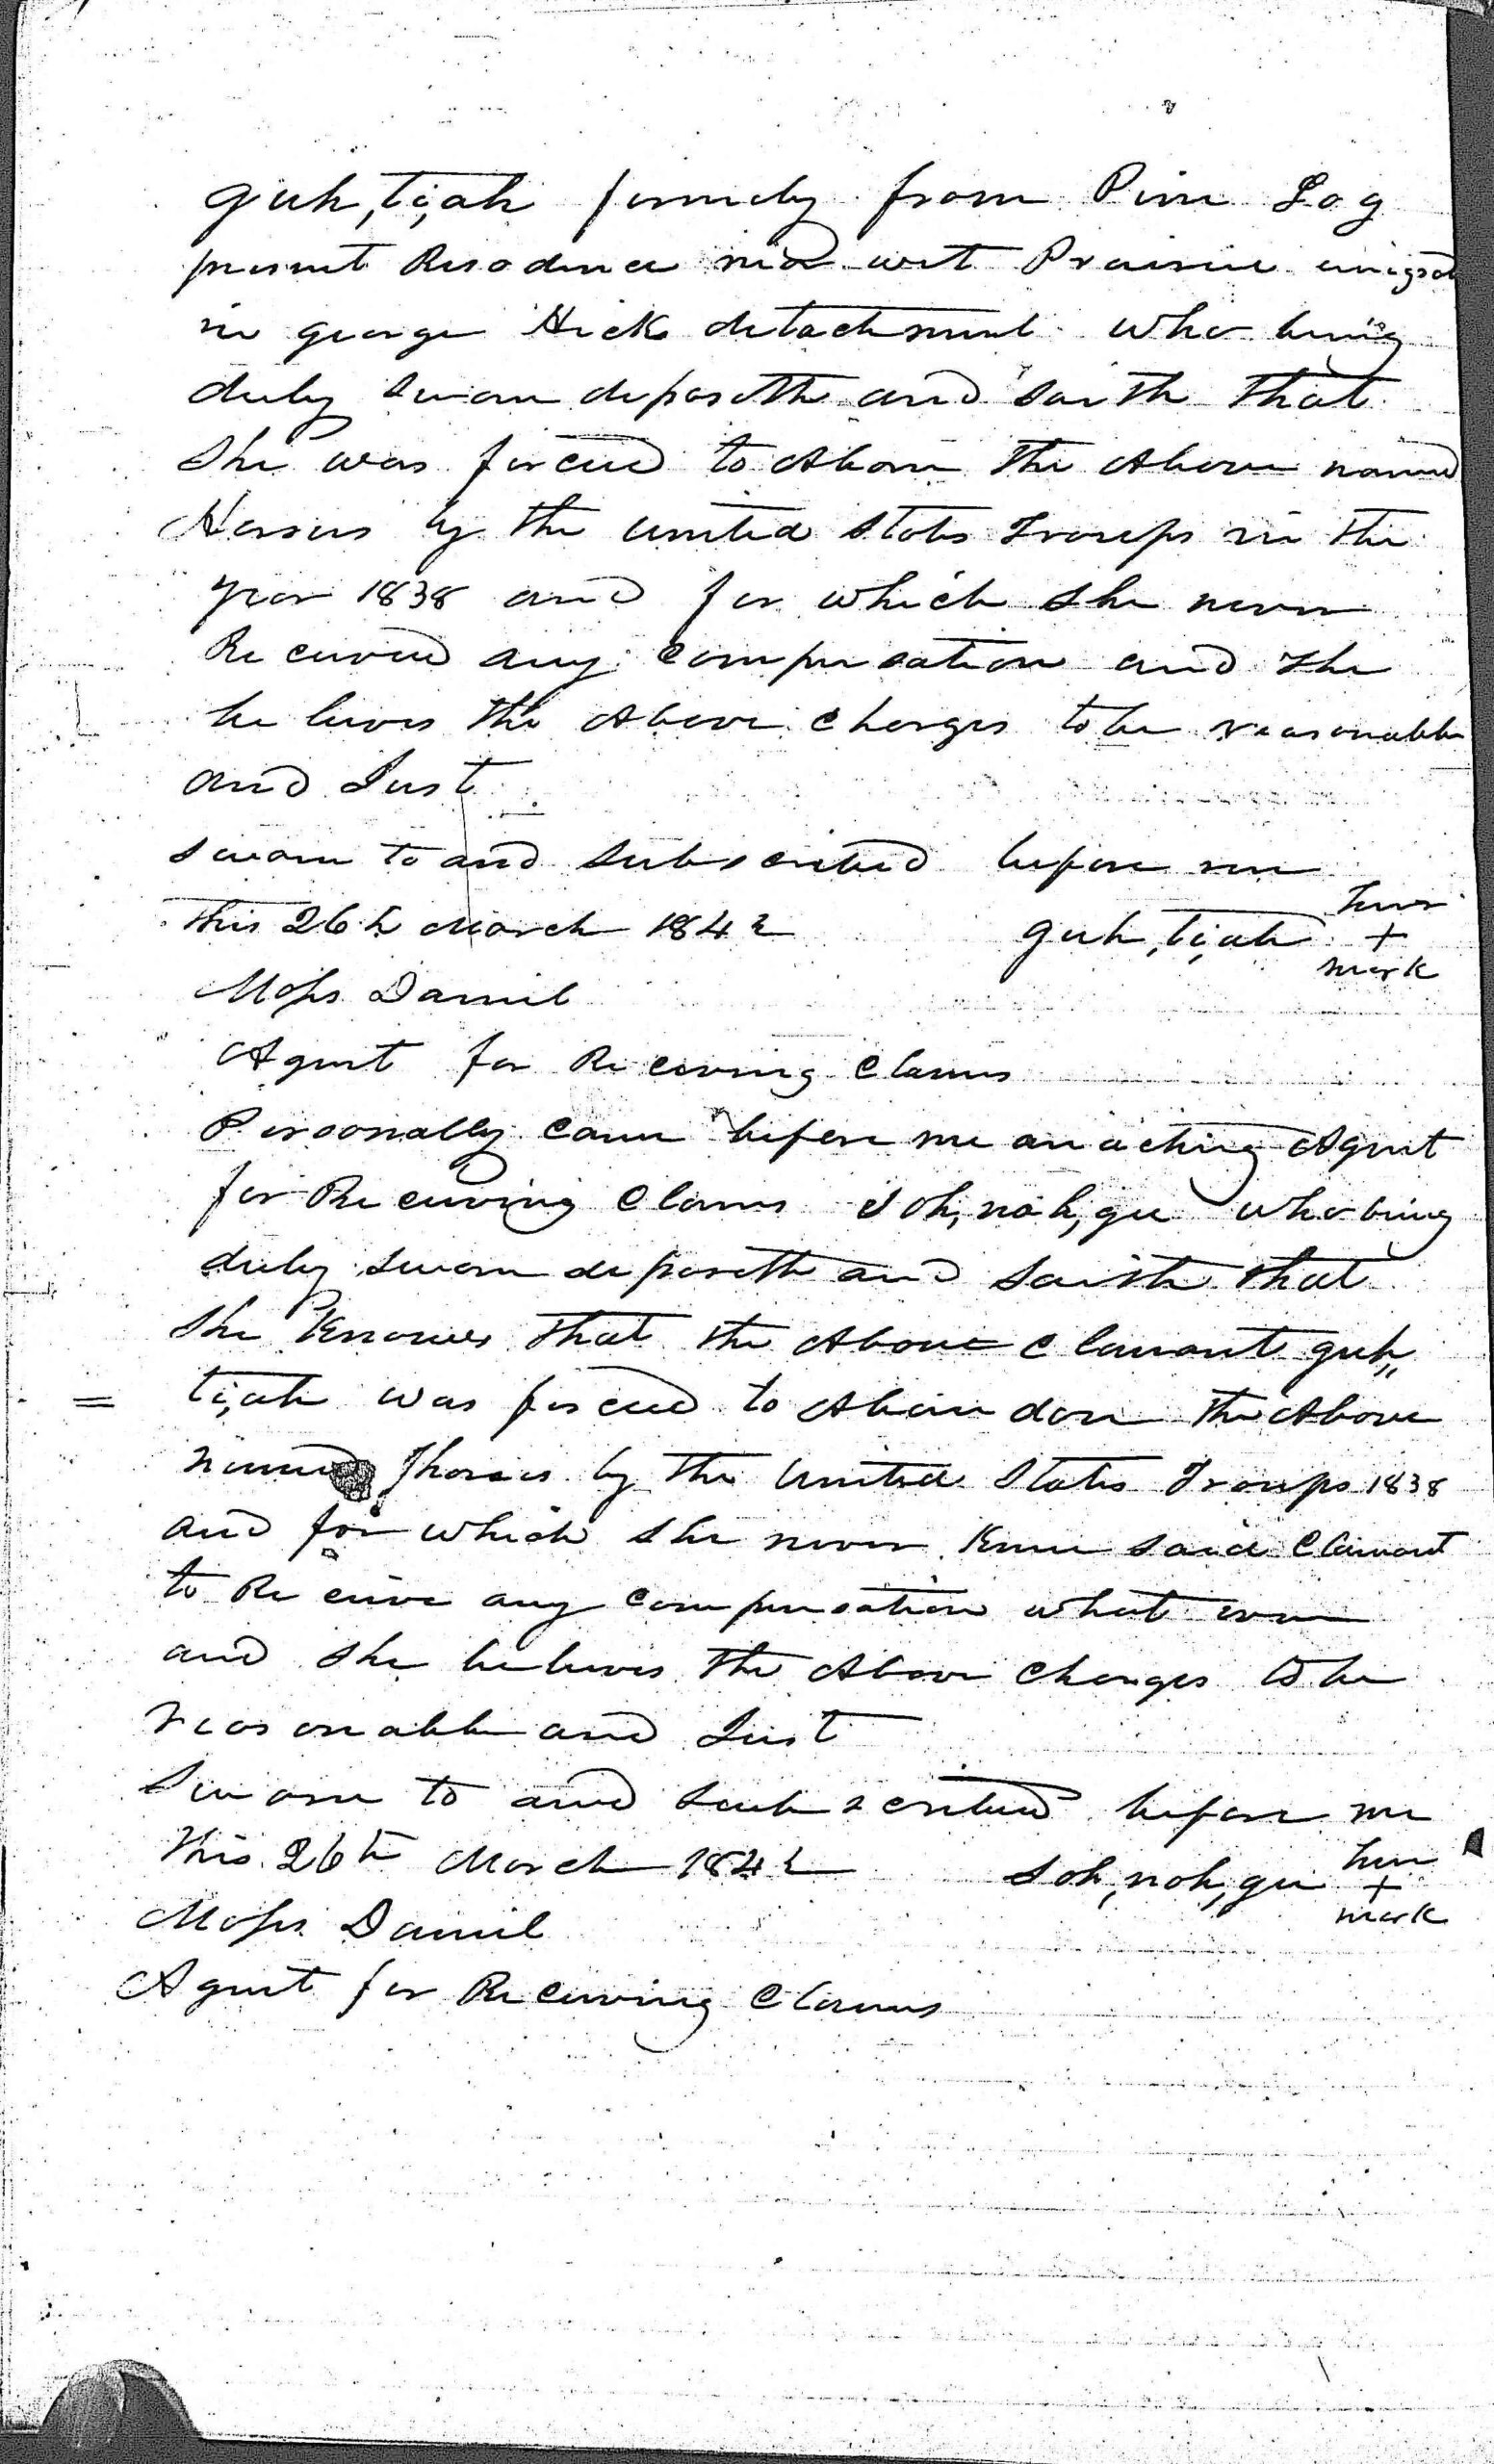 guh,ti,ah formely from Pine Log
present Resodence near wet Prairie emigrat
in george Hick detachment who being
duly sworn deposeth and saith that
She was forced to Abon the Above named
Horses by the United States Troops in the
year 1838 and for which she never
Received any compensation and she
believes the Above charges to be reasonable
and Just
sworn to and subscribed before me
this 26th March 1842 guh,ti,ah her + mark
Moses Daniel
Agent for Receiving Claims
Personally came before me an acting Agent
for Receiving Claims Soh,noh,gee who being
duly sworn deposeth and saith that
she knowes that the Above Claimant guh,,
ti,ah was forced to Abandon the Above
named horses by the United States Troops 1838
and for which she never knew said Claimant
to Receive any compensation what ever
and she believes the Above charges to be
reasonable and Just
Sworn to and subscribed before me
this 26th March 1842 Soh,noh,gee her + mark
Moses Daniel
Agent for Receiving Claims